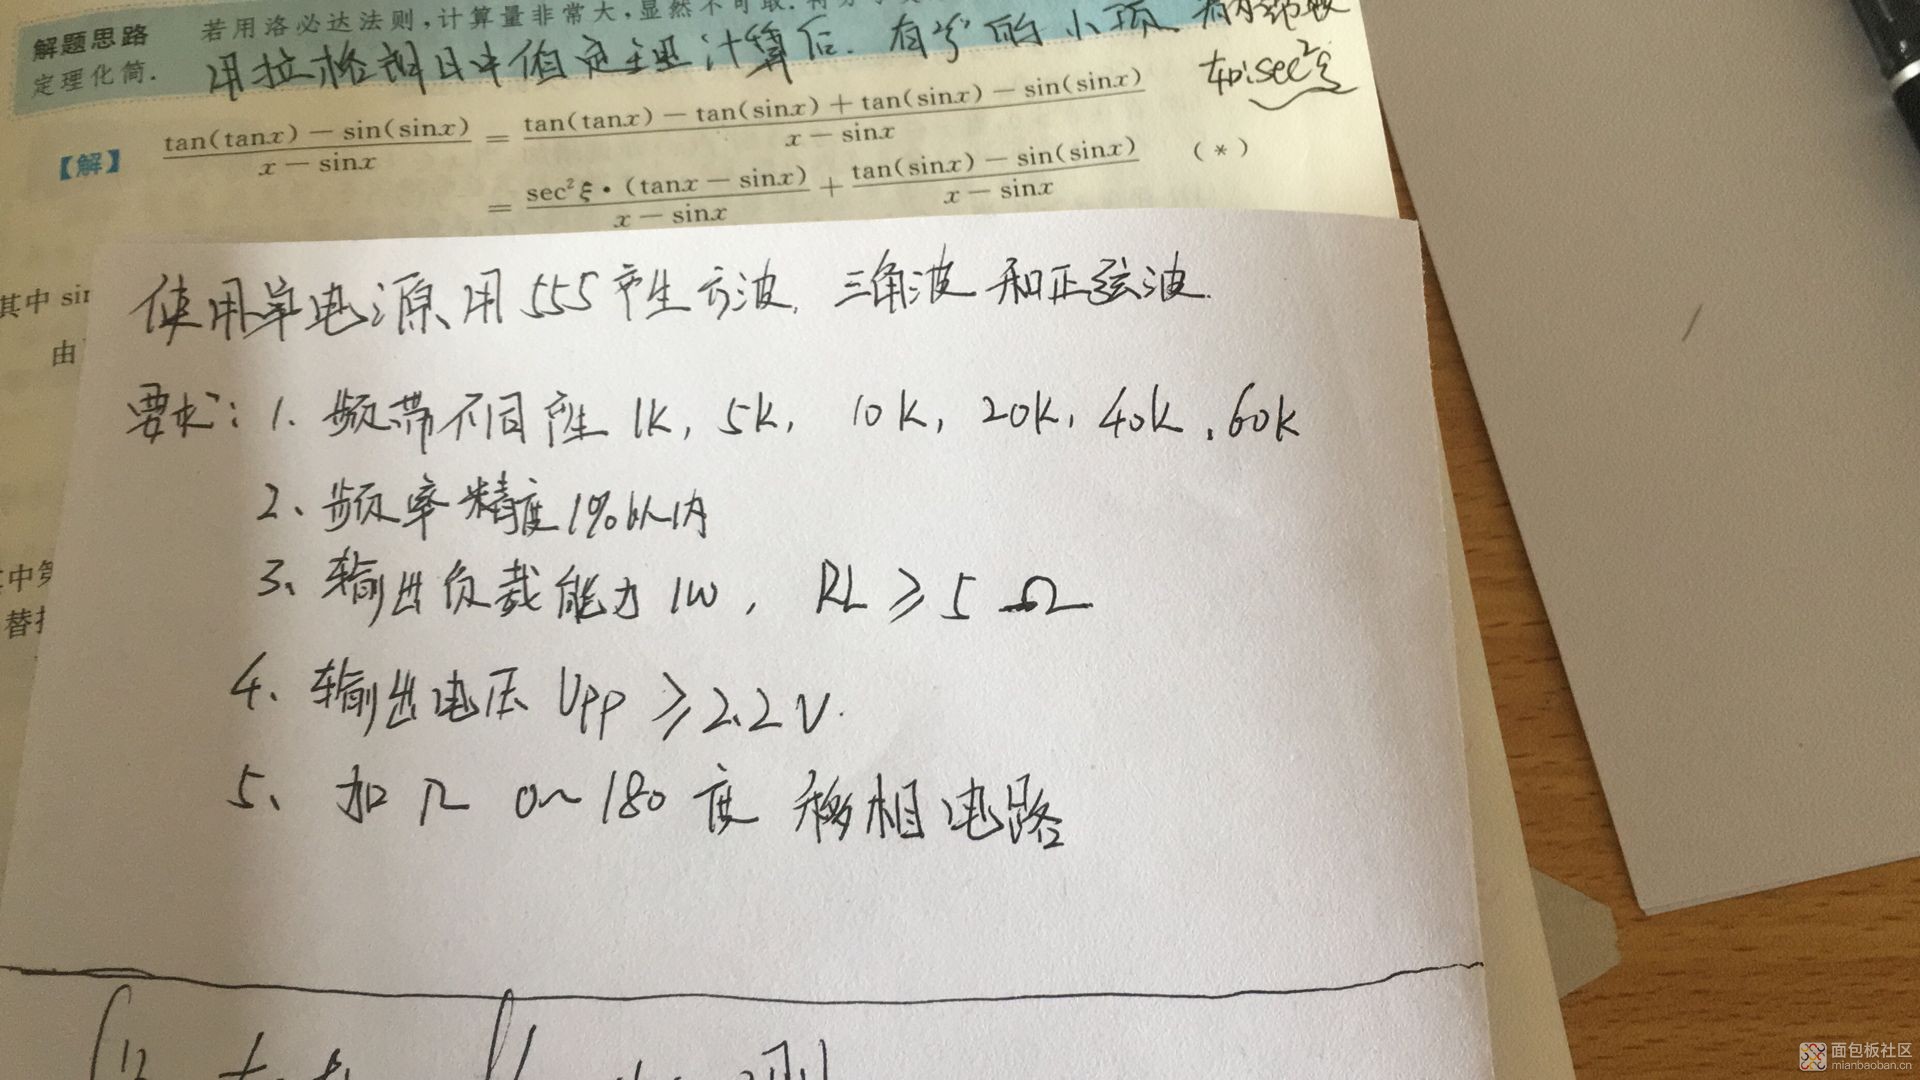 解题思路 若用洛必达法则,计算量非常大,显然不可取.
定理化简. 用拉格朗日中值定理计算后. 有ξ的小项
如:sec²ξ
【解】 \frac{tan(tanx) - sin(sinx)}{x - sinx} = \frac{tan(tanx) - tan(sinx) + tan(sinx) - sin(sinx)}{x - sinx}
= \frac{sec²ξ·(tanx - sinx)}{x - sinx} + \frac{tan(sinx) - sin(sinx)}{x - sinx} (*)
其中 sin
由
中
替
使用单电源用555产生方波, 三角波和正弦波.
要求: 1. 频带不同产生 1K, 5K, 10K, 20K, 40K, 60K
2、频率精度1%以内
3、输出负载能力1W, RL ≥ 5 Ω
4、输出电压 Vpp ≥ 2.2V.
5、加入 0~180度 移相电路
面包板社区
mianbaoban.cn